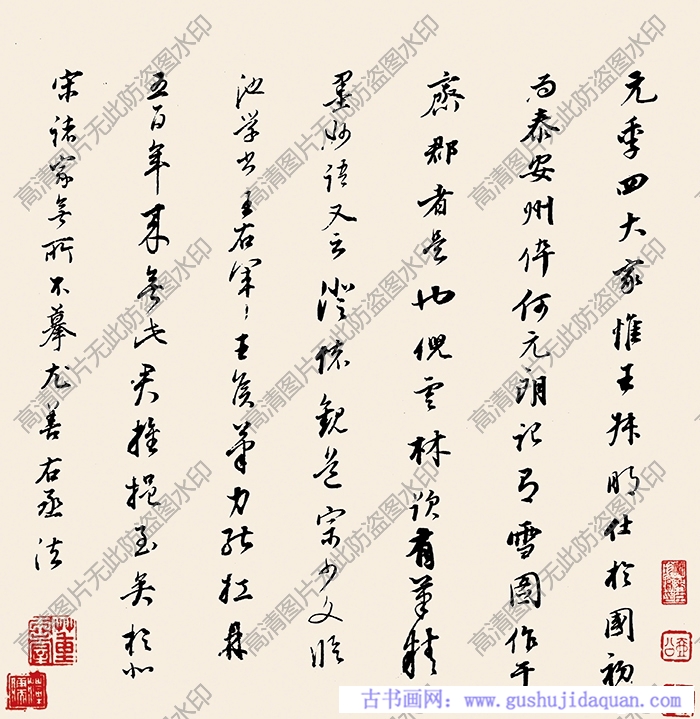 元季四大家惟王叔明仕於國初
为泰安州倅何元朗记有雪图作于
齋郡者是也倪雲林跋有筆精
墨妙语又云澄懷觀道宗少文临
池学书王右军王侯筆力能扛鼎
五百年来無此君推挹至矣於北
宋诸家無所不摹尤善右丞法
高清图片无此防盗图水印
古书画网:www.gushujidaquan.com